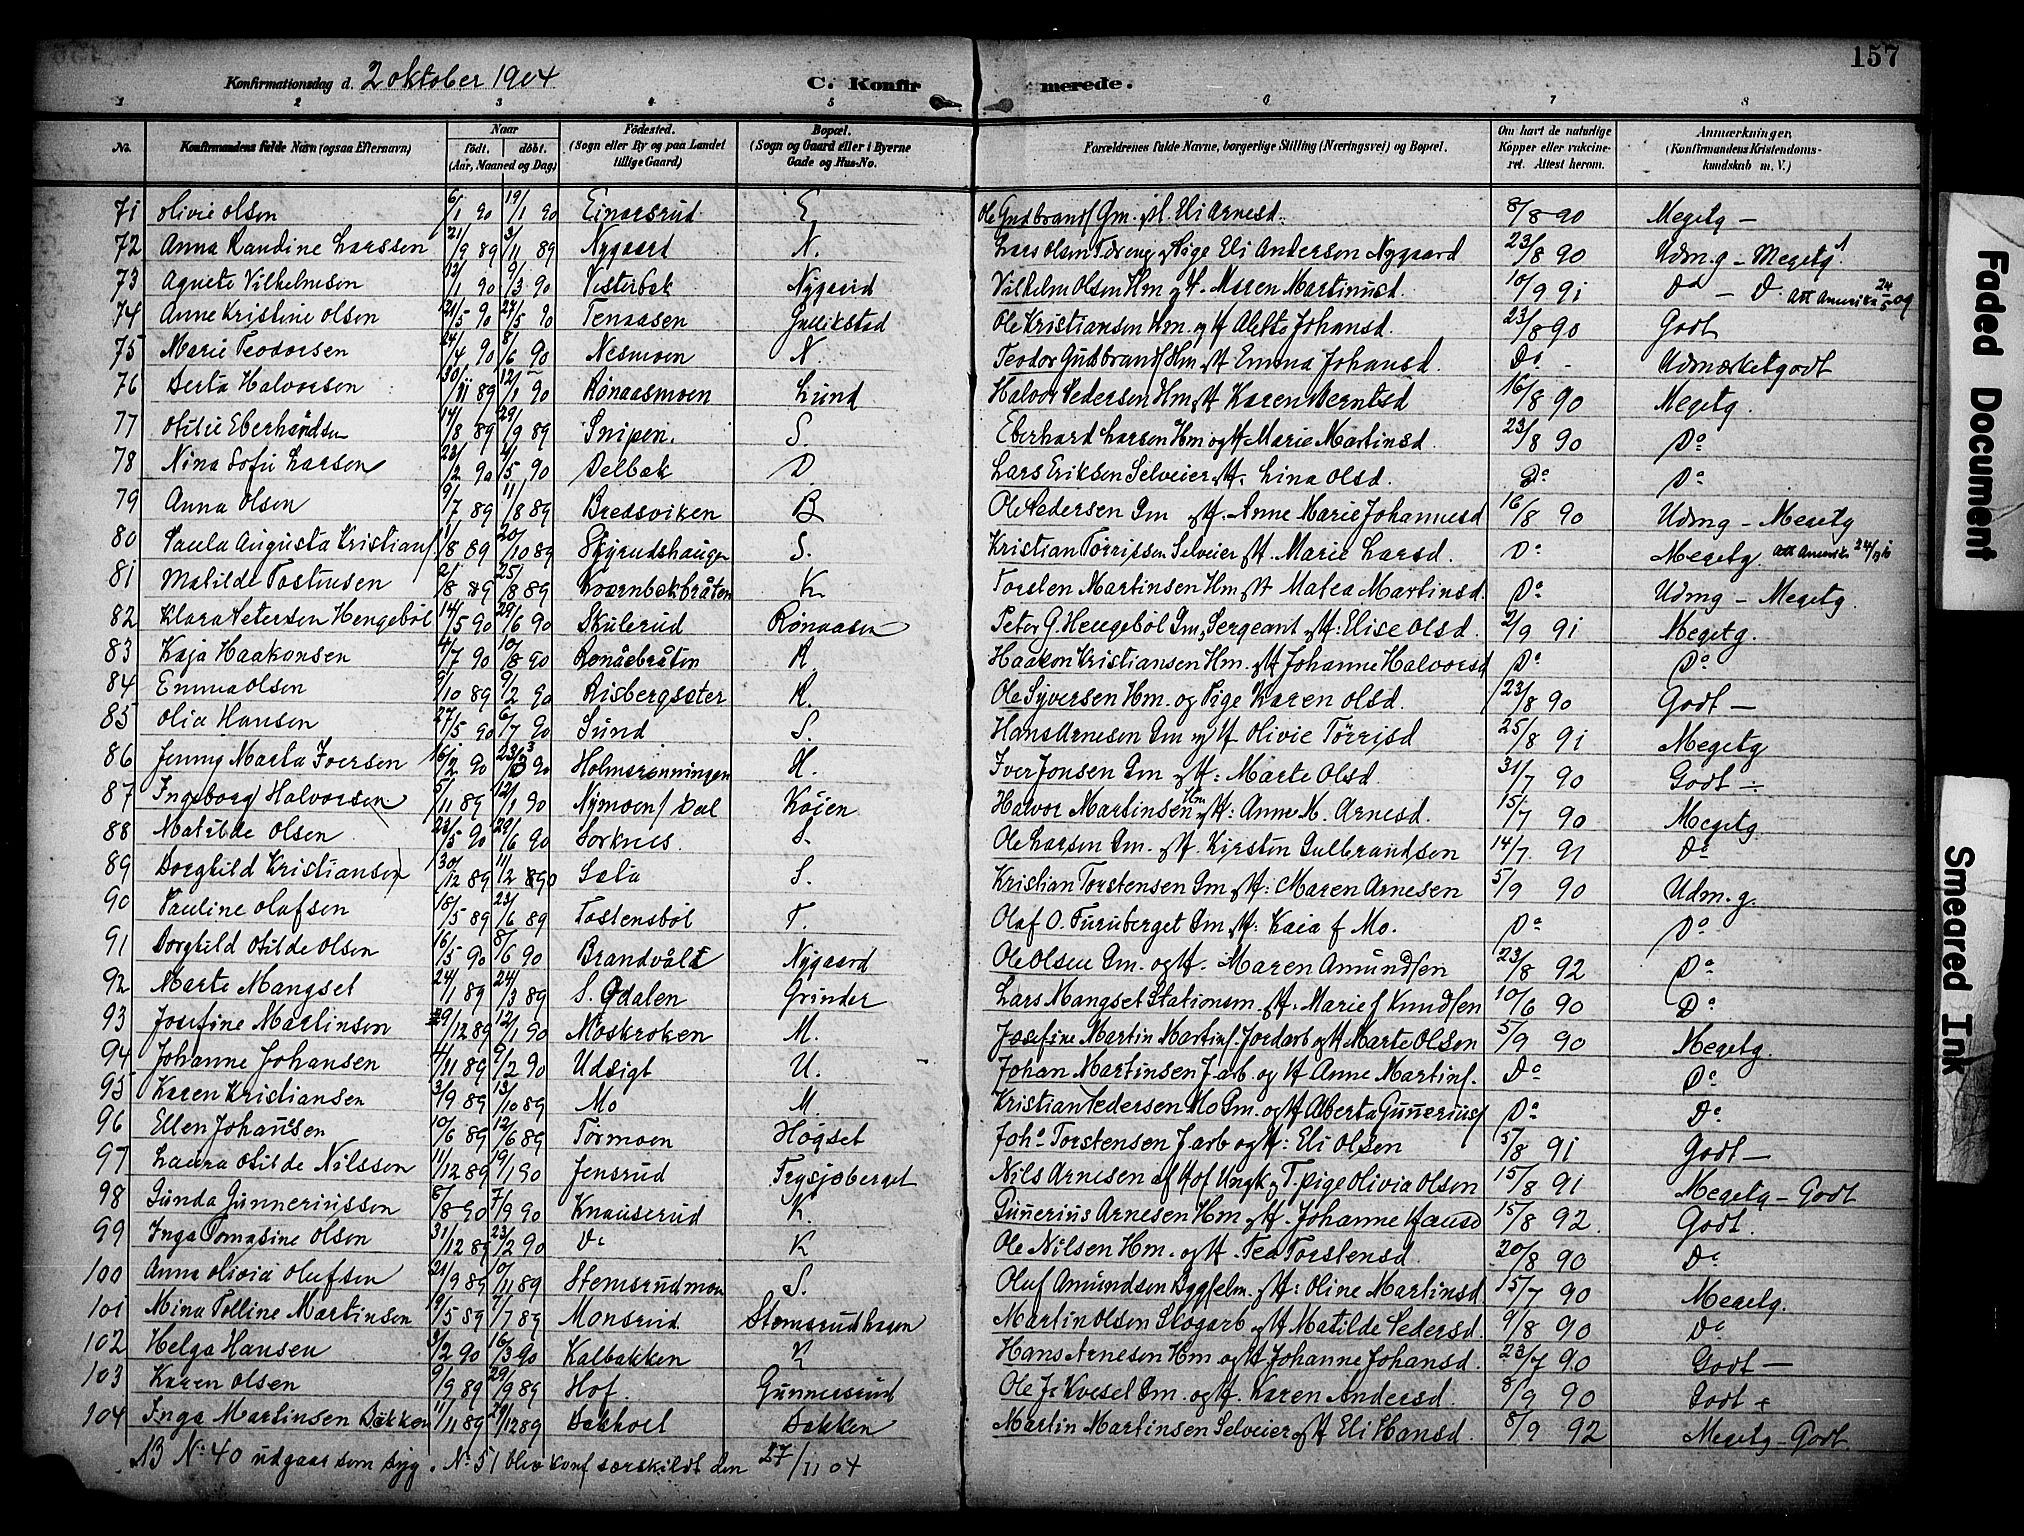 157
Konfirmationsdag d. 2 oktober 1904 C. Konfir merede.
1 2 3 4 5 6 7 8
No. Konfirmandens fulde Navn (ogsaa Efternavn) Naar født. døbt. (Aar, Maaned og Dag) Fødested. (Sogn eller By og paa Landet tillige Gaard) Bopæl. (Sogn og Gaard eller i Byerne Gade og Hus-No. Forældrenes fulde Navne, borgerlige Stilling (Næringsvei) og Bopæl. Om havt de naturlige Kopper eller vakcineret. Attest herom. Anmærkninger. (Konfirmandens Kristendomskundskab m. V.)
71 Olivie Olsen 6/1 90 19/1 90 Einarsrud E. Ole Gudbrands Gm. og H. Eli Arnesd. 8/8 90 Megetg —
72 Anna Randine Larssen 21/9 89 3/11 89 Nygaard N. Lars Olsen og Pige Eli Andersen Nygaard 23/8 90 Udm.g — Megetg.
73 Agnete Vilhelmsen 12/1 90 9/3 90 Vesterbak Nygaard Vilhelm Olsen Hm og H. Maren Martinusd. 10/9 91 Do — Do att Amerika 24/5 09
74 Anne Kristine Olsen 21/5 90 27/5 90 Tenaasen Gullikstad Ole Kristiansen Hm. og H Alette Johansd. 23/8 90 Godt
75 Marie Teodorsen 24/4 90 8/6 90 Nesmoen N. Teodor Gudbrands Hm. og H Emma Johansd. Do. Udmærketgodt
76 Berta Halvorsen 30/11 89 12/1 90 Rønaasmoen Lund Halvor Pedersen Hm og H Karen Berntsd 16/8 90 Megetg.
77 Otilie Eberhardsen 14/8 89 29/9 89 Snipen. S. Eberhard Larsen Hm og H Marie Martinsd. 23/8 90 Do
78 Nina Sofie Larsen 23/2 90 4/5 90 Delbak D. Lars Eriksen Selveier og H. Lina Olsd. Do Do
79 Anna Olsen 9/7 89 11/8 89 Bredsviken B Ole Pedersen Gm og H. Anne Marie Johannesd 16/8 90 Udmg — Megetg
80 Paula Augusta Kristians. 11/8 89 20/10 89 Skyrudshaugen S. Kristian Tørrissen Selveier og H. Marie Larsd. Do Megetg. att Amerika
81 Matilde Tostensen 2/8 89 25/8 89 Kværnbekbråten K Torsten Martinsen Hm og H Matea Martinsd. Do Udmg — Megetg.
82 Klara Petersen Hengebøl 14/5 90 29/6 90 Skulerud Rønaasen Peter G. Hengebøl Gm, Sergeant og H. Elise Olsd. 2/9 91 Megetg.
83 Kaja Haakonsen 4/7 90 10/8 90 Rønåsbråten R. Haakon Kristiansen Hm. og H Johanne Halvorsd Do Do
84 Emma Olsen 9/10 89 9/2 90 Risbergsæter R. Ole Syversen Hm. og Pige Karen Olsd. 23/8 90 Godt —
85 Olia Hansen 27/5 90 6/7 90 Sund S. Hans Arnesen Gm og H Olivie Tørrisd 25/8 91 Megetg
86 Jenny Marta Iversen 16/2 90 23/3 90 Holmsrønningen H. Iver Jonsen Gm og H: Marte Olsd. 31/7 90 Godt —
87 Ingeborg Halvorsen 5/11 89 12/1 90 Nymoen / Dal Køien Halvor Martinsen Hm og H: Anne M. Arnesd. 15/7 90 Megetg.
88 Matilde Olsen 23/5 90 29/6 90 Sorknes. S. Ole Larsen Gm. og H. Kirsten Gulbrandsen 14/7 91 Do
89 Borghild Kristiansen 30/12 89 11/2 90 Sæla S. Kristian Torstensen Gm og H: Maren Arnesen 5/9 90 Udm.g.
90 Pauline Olafsen 18/5 89 23/6 89 Tostensbøl T. Olaf O. Furuberget Gm og H: Kaia f Mo. Do Do
91 Borghild Otilde Olsen 16/5 90 8/6 90 Brandvåld Nygaard Ole Olsen Gm. og H. Maren Amundsen 23/8 92 Do
92 Marte Mangset 24/1 89 24/3 89 S. Odalen Grinder Lars Mangset Stationsm. og H. Marie f Knudsen 10/6 90 Do
93 Josefine Martinsen 29/12 89 12/1 90 Moskroken M. Josefine Martin Martins. Jordarb og H Marte Olsen 5/9 90 Megetg.
94 Johanne Johansen 4/11 89 9/2 90 Udsigt U. Johan Martinsen J.arb og H Anne Martins. Do Do
95 Karen Kristiansen 3/9 89 13/10 89 Mo M. Kristian Pedersen Mo Gm. og H Aberta Gunerius/ Do Do
96 Ellen Johansen 10/6 89 12/6 89 Tormoen Høgset Joh. Torstensen J.arb og H: Eli Olsen 5/8 91 Godt —
97 Laura Otilde Nilsson 11/12 89 19/1 90 Jensrud Frysjøberget Nils Arnesen af Hof Ungk og T.pige Olivia Olsen 15/8 91 Megetg — Godt
98 Gunda Gunneriusson 8/8 90 7/9 90 Knauserud K. Gunerius Arnesen Hm og H. Johanne Hansd 15/8 92. Godt.
99 Inga Tomasine Olsen 31/12 89 23/2 90 Do K Ole Nilsen Hm. og H. Tea Torstensd. 20/8 90 Do
100 Anna Olivia Olufsen 21/9 89 10/11 89 Stemsrudmoen S. Oluf Amundsen Byggselm. og H: Oline Martinsd 15/7 90 Megetg.
101 Mina Tolline Martinsen 19/5 89 7/7 89 Monsrud Stemsrudhagen Martin Olsen Skogarb og H Matilde Pedersd. 9/8 90 Do
102 Helga Hansen 3/2 90 16/3 90 Kalbakken K Hans Arnesen Hm og H Johanne Johansd. 23/7 90 Godt —
103 Karen Olsen 9/9 89 29/9 89 Hof. Gunnersrud Ole J. Kvesel Gm. og H. Karen Andersd. 8/9 90 Godt +
104 Inga Martinsen Bakken 11/11 89 29/12 89 Bakholt Bakken Martin Martinsen Selveier og H Eli Hansd. 8/9 92 Megetg — Godt.
NB No 40 udgaar som syg. No 51 blev konf særskildt den 27/11 04
Faded Document
Smeared Ink